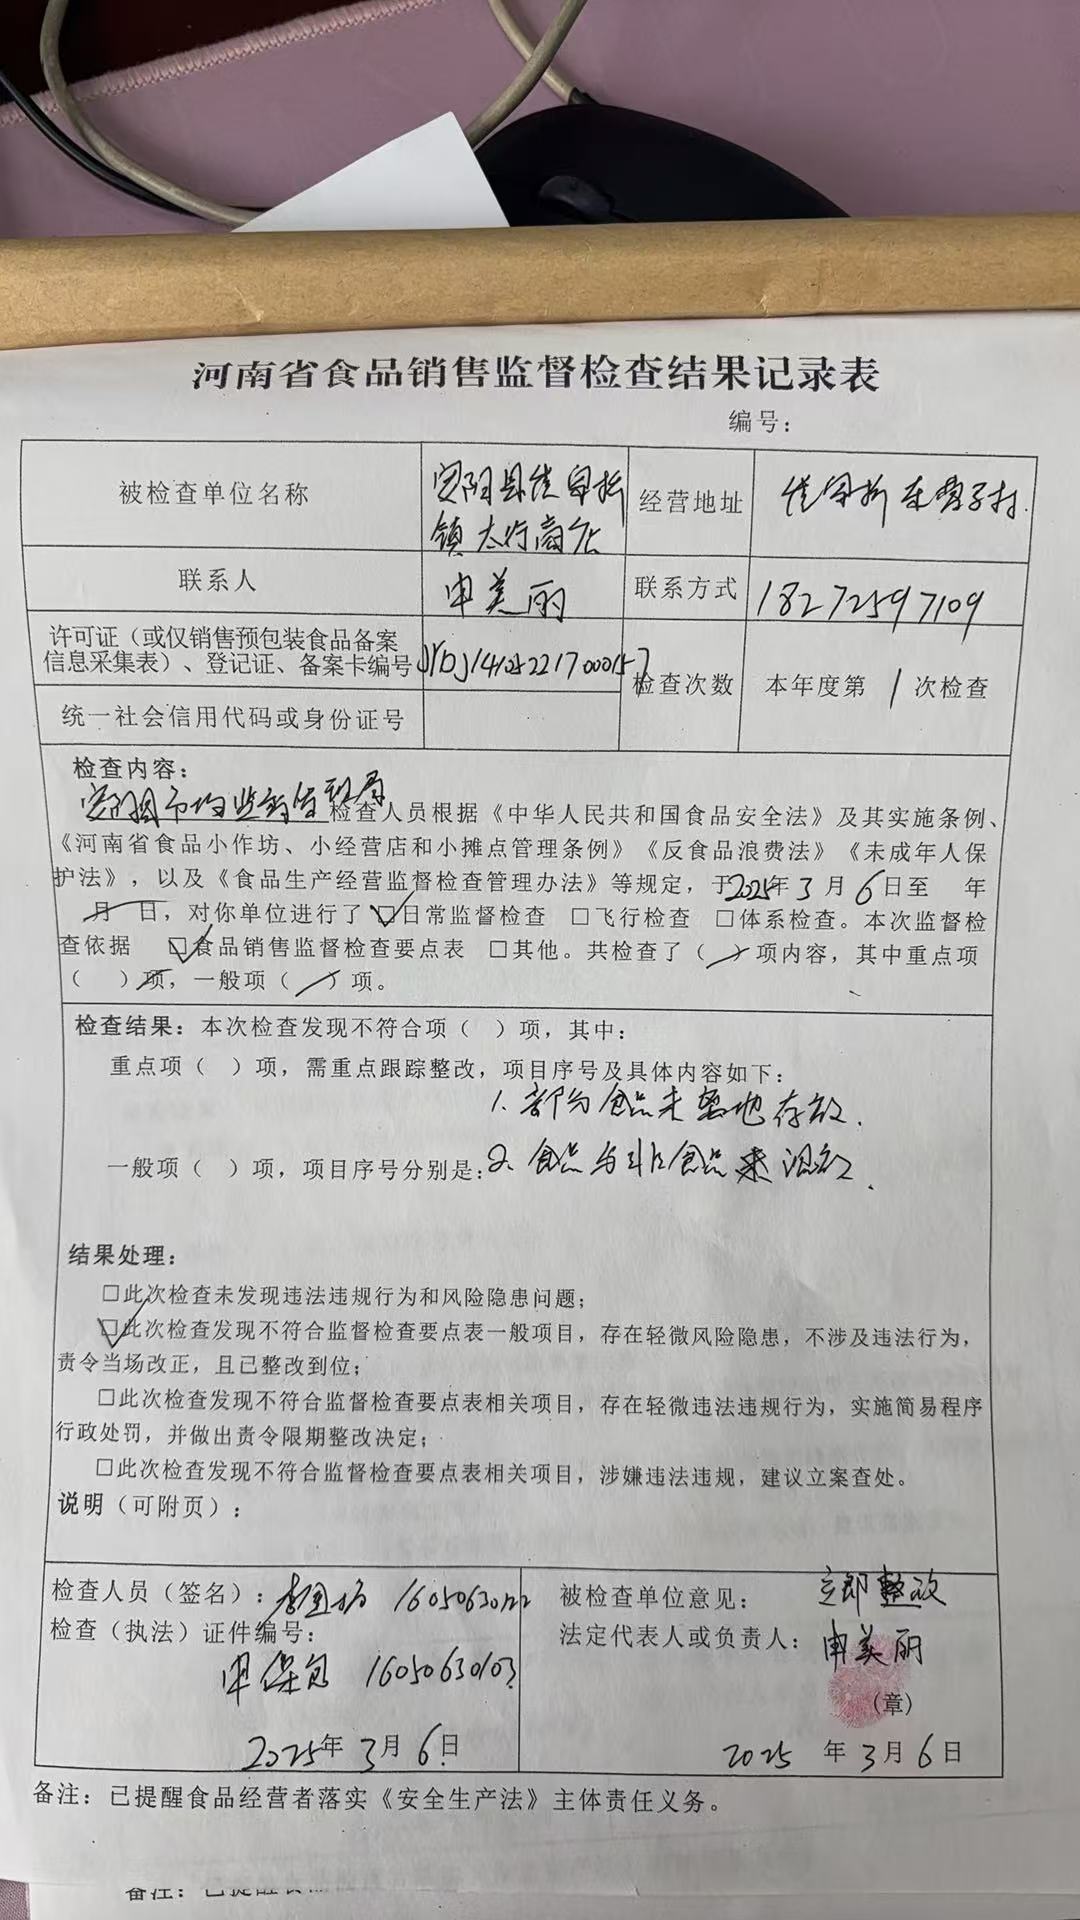 河南省食品销售监督检查结果记录表
编号：
被检查单位名称
安阳县崔家桥
镇太行商店
经营地址
崔家桥东营子村.
联系人
申美丽
联系方式
18272597109
许可证（或仅销售预包装食品备案
信息采集表）、登记证、备案卡编号
检查次数
本年度第 1 次检查
统一社会信用代码或身份证号
检查内容：
安阳县市场监督管理局检查人员根据《中华人民共和国食品安全法》及其实施条例、
《河南省食品小作坊、小经营店和小摊点管理条例》《反食品浪费法》《未成年人保
护法》，以及《食品生产经营监督检查管理办法》等规定，于2025年 3 月 6 日至 年
月 日，对你单位进行了 ☑日常监督检查 □飞行检查 □体系检查。本次监督检
查依据 ☑食品销售监督检查要点表 □其他。共检查了（ / ）项内容，其中重点项
（ ）项，一般项（ / ）项。
检查结果：本次检查发现不符合项（ ）项，其中：
重点项（ ）项，需重点跟踪整改，项目序号及具体内容如下：
1. 部分食品未离地存放.
一般项（ ）项，项目序号分别是：2. 食品与非食品 混放.
结果处理：
□此次检查未发现违法违规行为和风险隐患问题；
☑此次检查发现不符合监督检查要点表一般项目，存在轻微风险隐患，不涉及违法行为，
责令当场改正，且已整改到位；
□此次检查发现不符合监督检查要点表相关项目，存在轻微违法违规行为，实施简易程序
行政处罚，并做出责令限期整改决定；
□此次检查发现不符合监督检查要点表相关项目，涉嫌违法违规，建议立案查处。
说明（可附页）：
检查人员（签名）：
检查（执法）证件编号：
申保 16050630103
2025年 3月 6日
被检查单位意见： 立即整改
法定代表人或负责人： 申美丽
（章）
2025 年 3月 6日
备注：已提醒食品经营者落实《安全生产法》主体责任义务。